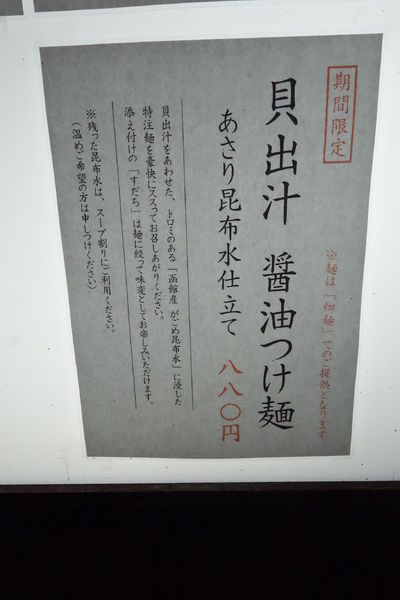 期間限定
※麺は「細麺」でのご提供となります
貝出汁 醤油つけ麺
あさり昆布水仕立て 八八〇円
貝出汁をあわせた、トロミのある「函館産 がごめ昆布水」に浸した
特注麺を豪快にススってお召しあがりください。
添え付けの「すだち」は麺に絞って味変としてお楽しみいただけます。
※残った昆布水は、スープ割りにご利用ください。
（温めご希望の方は申しつけください）